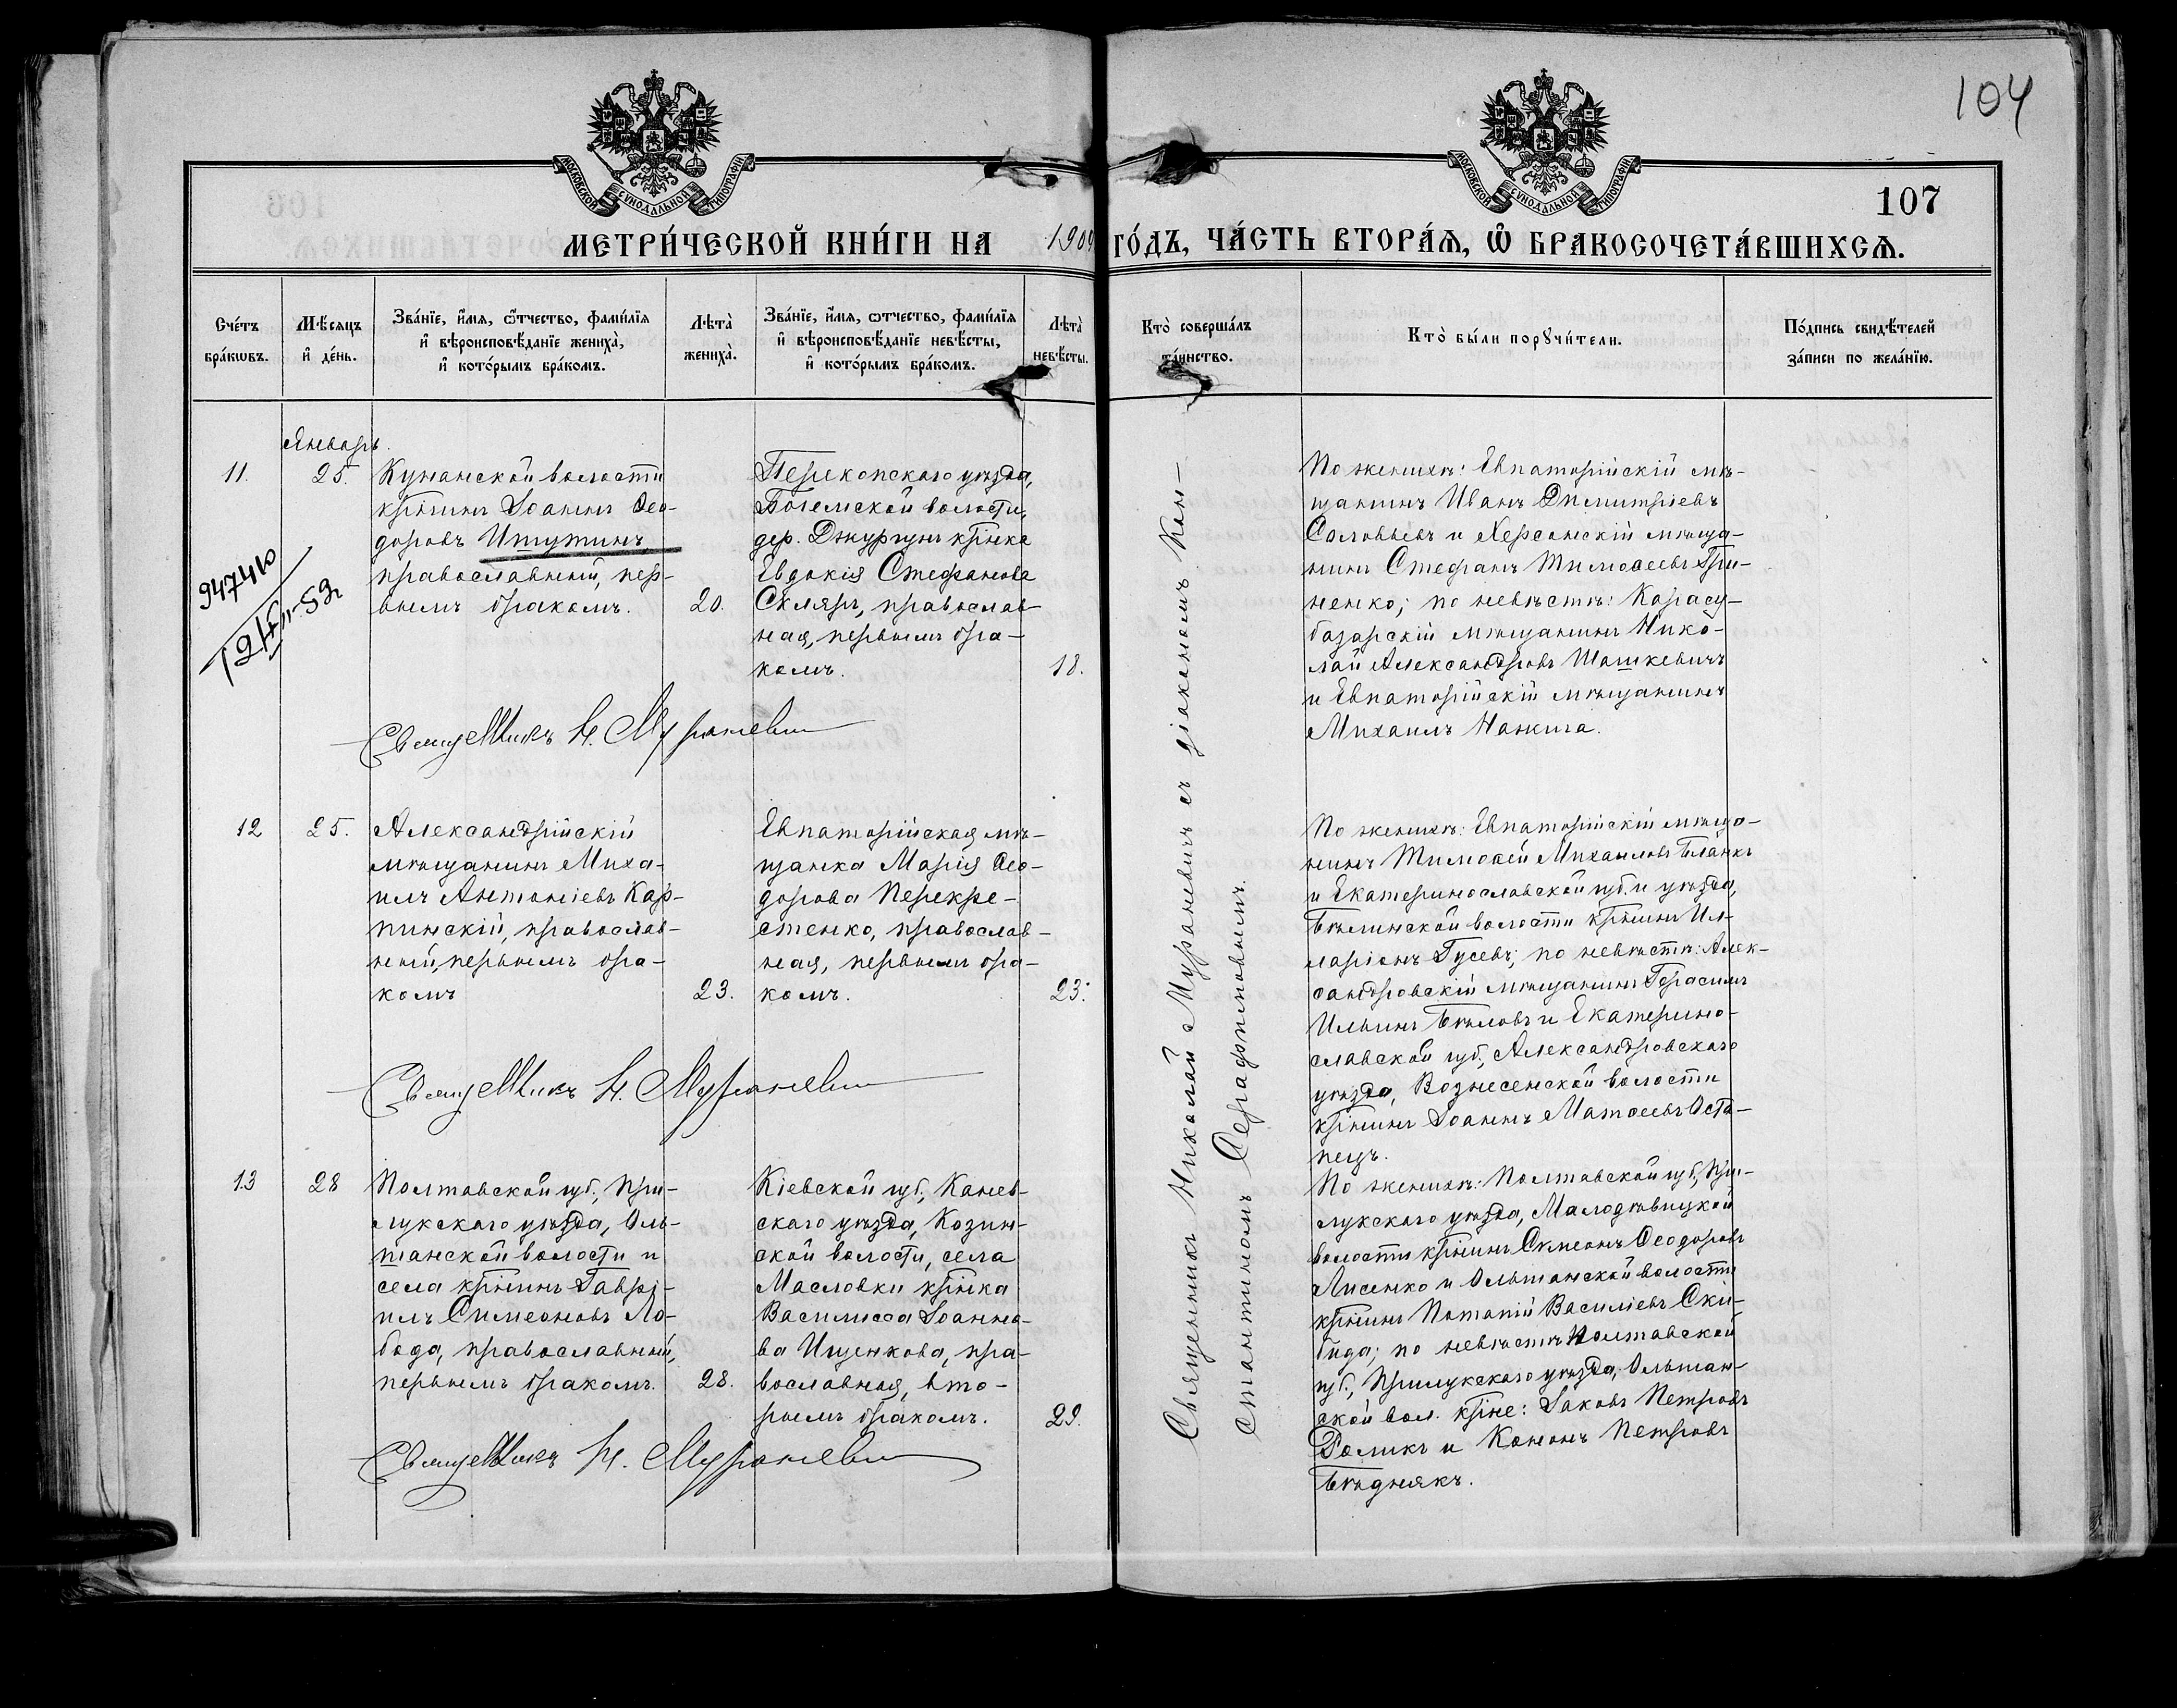 104
107
МОСКОВСКОЙ СѴНОДАЛЬНОЙ ТИПОГРАФІИ
МОСКОВСКОЙ СѴНОДАЛЬНОЙ ТИПОГРАФІИ
МЕТРИ́ЧЕСКОЙ КНИ́ГИ НА 1904 ГО́ДЪ, ЧА́СТЬ ВТОРА́Я, Ѡ҆ БРАКОСОЧЕТА́ВШИХСѦ.
Сче́тъ
бра́кѡвъ.
Мѣ́сяцъ
и҆ де́нь.
Зва́нїе, и҆́мя, ѻ҆́тчество, фами́лїя
и҆ вѣроисповѣ́данїе жениха̀,
и҆ кото́рымъ бра́комъ.
Лѣта̀
жениха̀.
Зва́нїе, и҆́мя, ѻ҆́тчество, фами́лїя
и҆ вѣроисповѣ́данїе невѣ́сты,
и҆ кото́рымъ бра́комъ.
Лѣта̀
невѣ́сты.
Кто̀ соверша́лъ
та́инство.
Кто̀ бы́ли порꙋчи́тели.
По́дпись свидѣ́телей
за́писи по жела́нїю.
Январь.
11.
25.
волости
крнинъ Іоаннъ Ѳео-
доровъ
православный, пер-
вымъ бракомъ.
20.
Перекопскаго уѣзда,
Богемской волости,
дер. Джургунъ крнка
Евдокія Стефанова
Скляръ, православ-
ная, первымъ бра-
комъ.
18.
Священникъ Н. Мураневич
По женихѣ: Евпаторійскій мѣ-
щанинъ Иванъ Димитріевъ
Соловьевъ и Херсонскій мѣща-
нинъ Стефанъ Тимоѳеевъ Гри-
ненко; по невѣстѣ: Карасу-
базарскій мѣщанинъ Нико-
лай Александровъ Шашкевичъ
и Евпаторійскій мѣщанинъ
Михаилъ
12
25.
Александрійскій
мѣщанинъ Миха-
илъ Антоніевъ Кар-
пинскій, православ-
ный, первымъ бра-
комъ
23.
Евпаторійская мѣ-
щанка Марія Ѳео-
дорова Перекре-
стенко, православ-
ная, первымъ бра-
комъ.
23.
Священникъ Н. Мураневич
По женихѣ: Евпаторійскій мѣща-
нинъ Тимоѳей Михаиловъ Бланкъ
и Екатеринославской губ. и уѣзда,
волости крнинъ Ил-
ларіонъ Гусевъ; по невѣстѣ: Алек-
сандровскій мѣщанинъ Герасимъ
Ильинъ Бѣловъ и Екатерино-
славской губ., Александровскаго
уѣзда, Вознесенской волости
крнинъ Іоаннъ Матѳеевъ Оста-
пецъ.
13
28
Полтавской губ., При-
лукскаго уѣзда, Оль-
шанской волости и
села крнинъ Гаврі-
илъ Симеоновъ Ло-
бода, православный,
первымъ бракомъ.
28.
Кіевской губ., Канев-
скаго уѣзда, Козин-
ской волости, села
Масловки крнка
Василисса Іоанно-
ва Ищенкова, пра-
вославная, вто-
рымъ бракомъ.
29.
Священникъ Н. Мураневич
По женихѣ: Полтавской губ., При-
лукскаго уѣзда, Малодѣвицкой
волости крнинъ Симеонъ Ѳеодоровъ
Лисенко и Ольшанской волости
крнинъ Потапій Василіевъ Ски-
бида; по невѣстѣ Полтавской
губ., Прилукскаго уѣзда, Ольшан-
ской вол. крне: Іаковъ Петровъ
и Кононъ Петровъ
Бѣднякъ.
Священникъ Николай Мураневичъ съ діакономъ Кон-
стантиномъ Серафимовымъ.